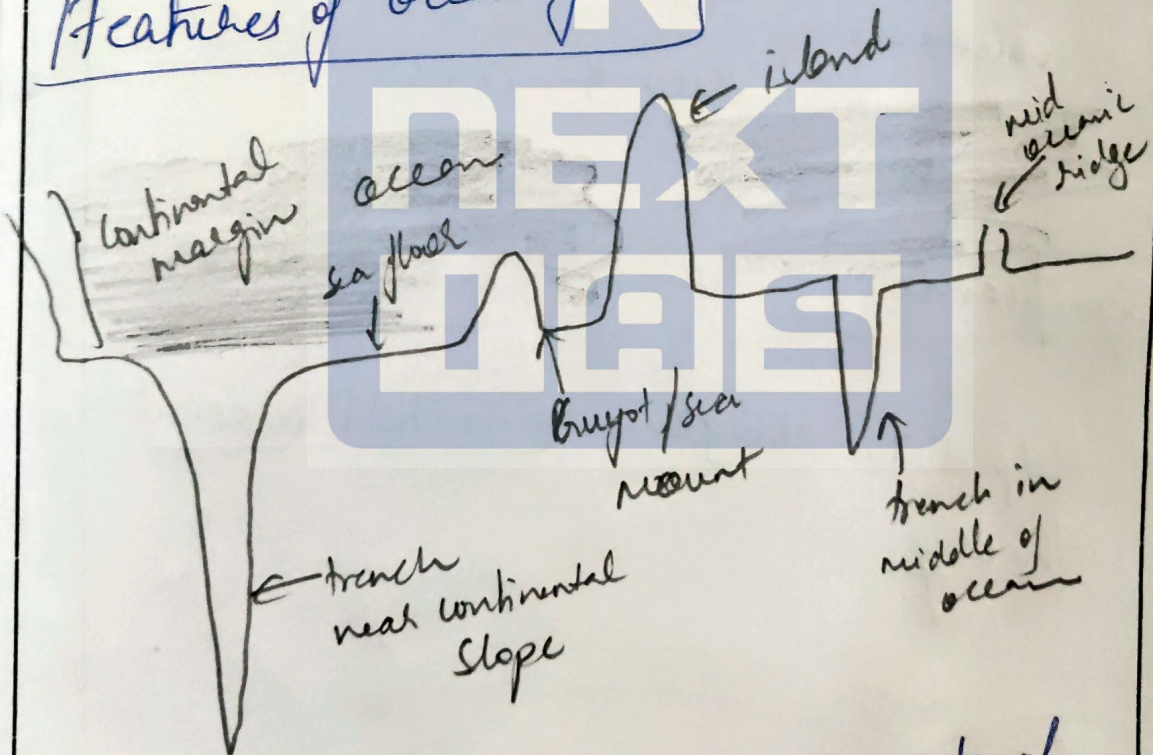 Features of
island
mid
oceanic
ridge
NEXT
IAS
continental
margin
ocean
sea floor
Guyot / sea
mount
trench in
middle of
ocean
trench
near continental
slope